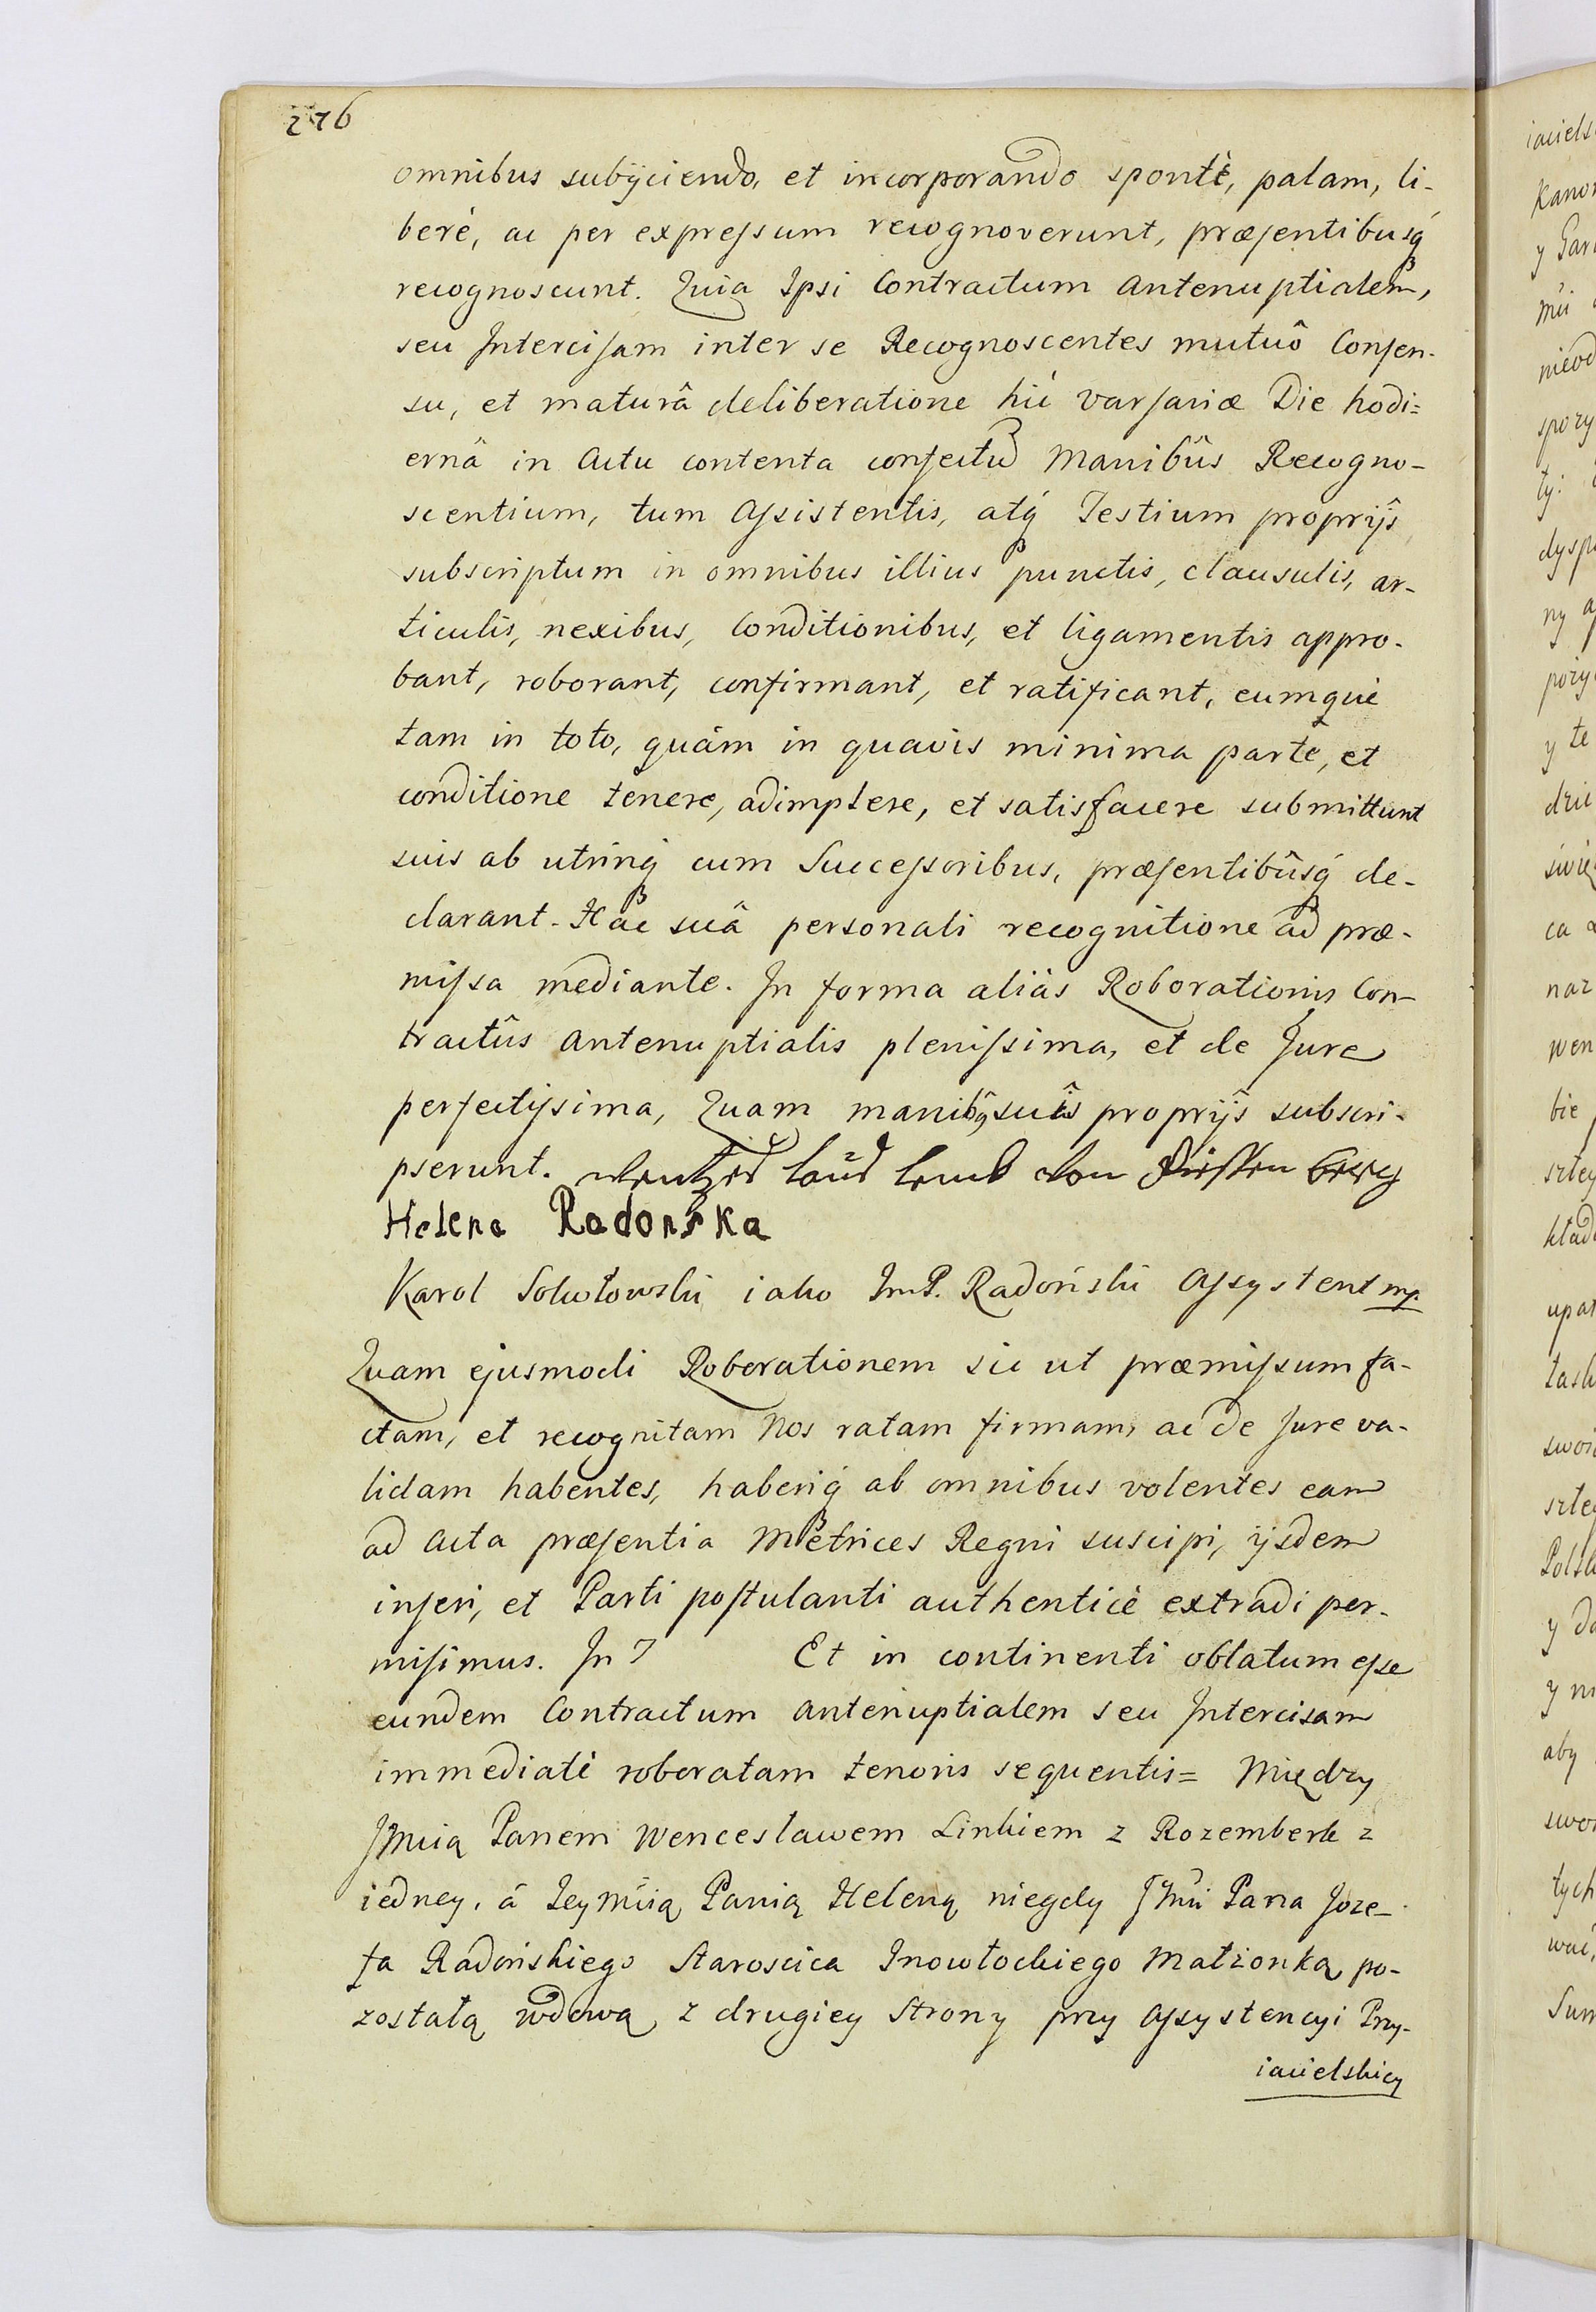 276
omnibus subijciendo, et incorporando spontè, palam, li-
berè, ac per expreſsum recognoverunt, præſentibusq́
recognoscunt. Quia Ipsi Contractum Antenuptialem,
seu Interciſam inter se Recognoscentes mutuô Conſen-
su, et maturâ deliberatione hic Varſaviæ Die hodi=
ernâ in Actu contenta confectũ Manibûs Recogno-
scentium, tum Aſsistentis, atq́ Testium proprijs
subscriptum in omnibus illius punctis, clausulis, ar-
ticulis, nexibus, Conditionibus, et ligamentis appro-
bant, roborant, confirmant, et ratificant, eumque
tam in toto, quàm in quavis minima parte, et
conditione tenere, adimplere, et satisfacere submittunt
suis ab utrinq́ cum Succeſsoribus, præſentibûsq́ de-
clarant. Hac suâ personali recognitione ad præ-
miſsa mediante. In forma aliàs Roborationis Con-
tractûs Antenuptialis pleniſsima, et de Jure
perfectiſsima, Quam manibꝫ suîs proprijs subscri-
pserunt.
Helena Radonska
Karol Sokołowski iako ImP. Radońskiey Aſsystent mp
Quam ejusmodi Roborationem sic ut præmiſsum fa-
ctam, et recognitam Nos ratam firmam, ac de Jure va-
lidam habentes, haberiq́ ab omnibus volentes eam
ad Acta præſentia Metrices Regni suscipi, ijsdem
inſeri, et Parti poſtulanti authenticè extradi per-
miſimus. In 7 Et in continenti oblatum eſse
eundem Contractum Antenuptialem seu Intercisam
immediatè roboratam tenoris sequentis= Między
JMcią Panem Wencesławem Linkiem z Rozemberk z
iedney, â JeyMcią Panią Heleną niegdy JMci Pana Joze-
fa Radońskiego Staroscica Inowłockiego Małżonką po-
zostałą wdową z drugiey Strony przy Aſsystencyi Przy-
iacielskiey